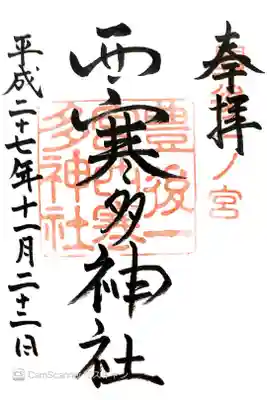 奉拝
豊後一ノ宮
西寒多神社
豊後一
宮西寒
多神社
平成二十七年十一月二十二日
CS CamScanner